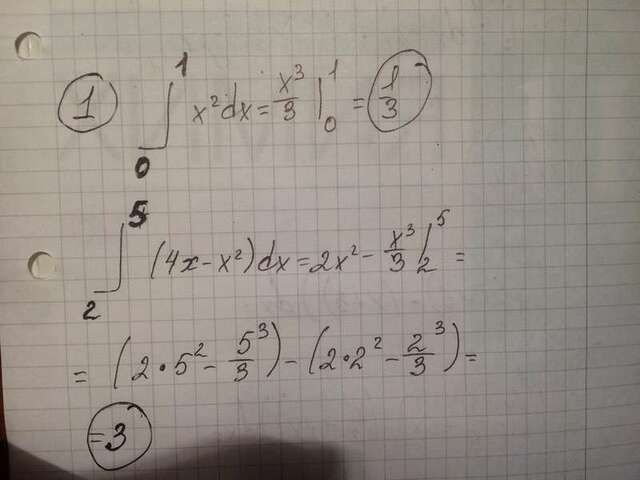 ① ∫₀¹ x² dx = x³/3 |₀¹ = 1/3
∫₂⁵ (4x - x²) dx = 2x² - x³/3 |₂⁵ =
= (2·5² - 5³/3) - (2·2² - 2³/3) =
= 3